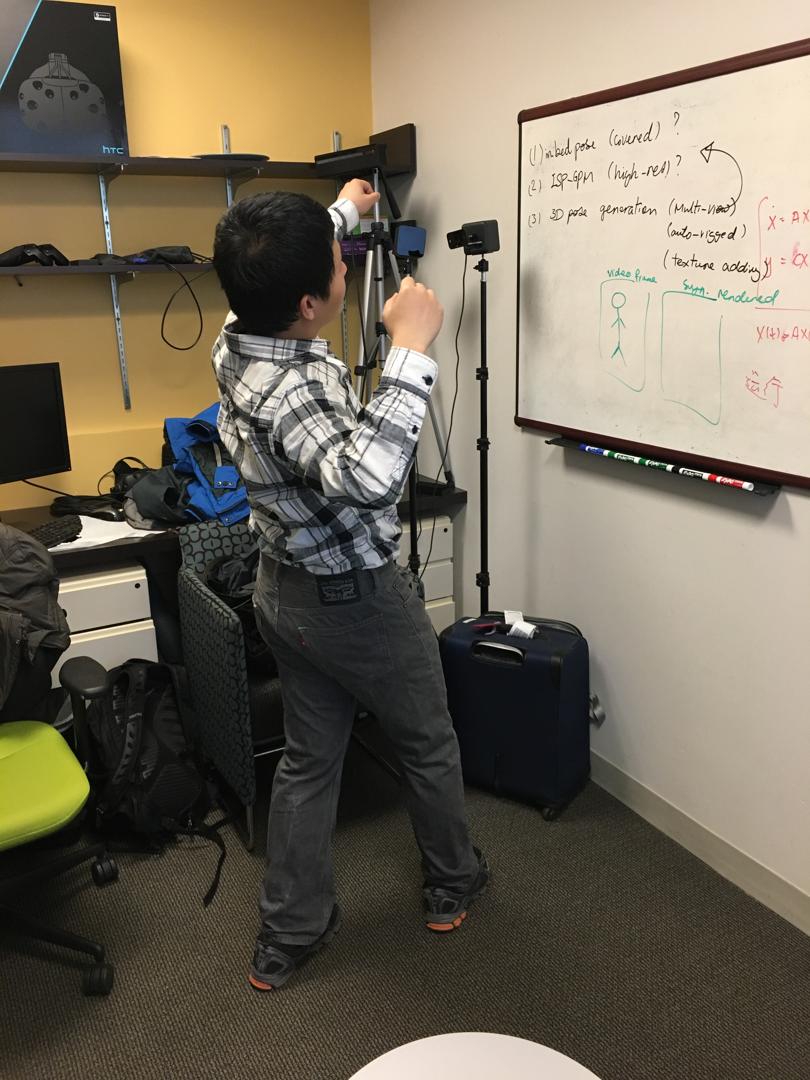 htc
(1) in bed pose (covered) ?
(2) ISP-GPM (high-res) ?
(3) 3D pose generation (Multi-view)
(auto-rigged)
(texture adding)
video frame
rendered
X = AX
X(t) = AX